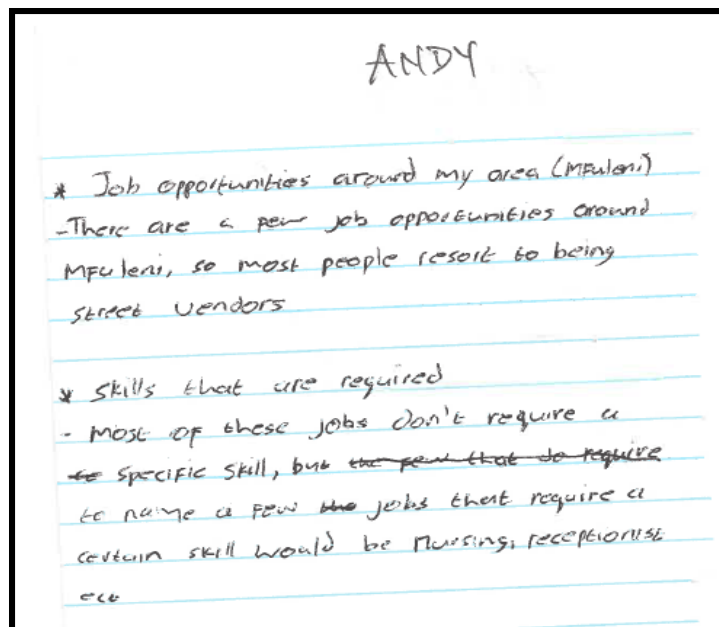 ANDY
* Job opportunities around my area (Mfuleni)
-There are a few job opportunities around
Mfuleni, so most people resort to being
street vendors
* Skills that are required
- Most of these jobs don't require a
to specific skill, but the few that do require
to name a few the jobs that require a
certain skill would be Nursing, receptionist
ect